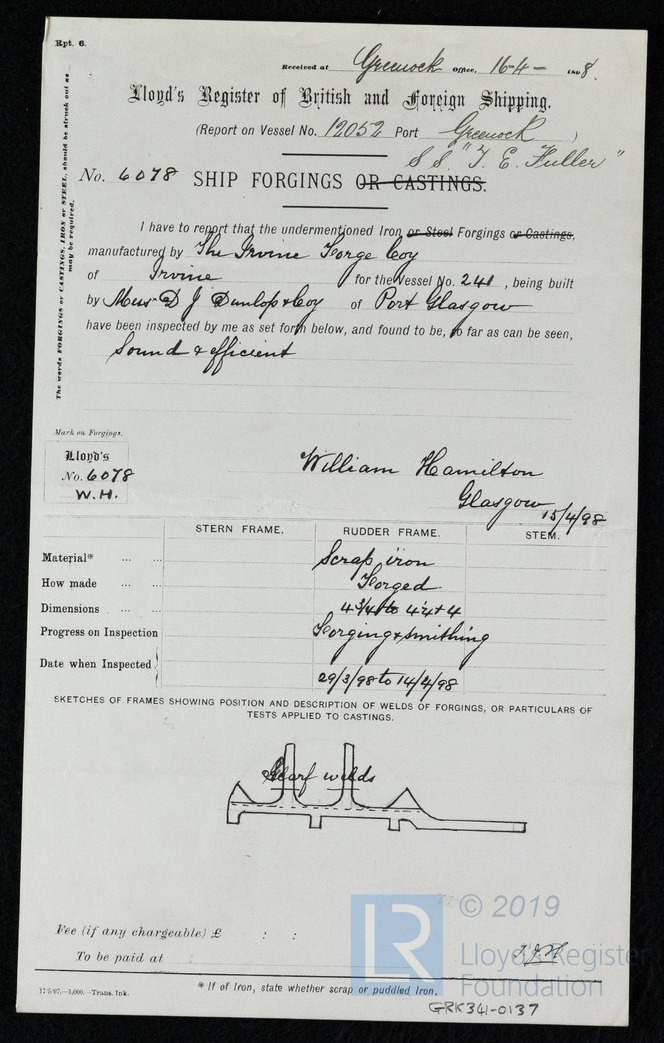 Rpt. 6.
Received at Greenock Office, 16-4- 1898.
Lloyd's Register of British and Foreign Shipping.
(Report on Vessel No. 12052 Port Greenock )
S.S. "T. E. Fuller"
No. 6078 SHIP FORGINGS OR CASTINGS.
The words FORGINGS or CASTINGS, IRON or STEEL, should be struck out as may be required.
I have to report that the undermentioned Iron or Steel Forgings or Castings,
manufactured by The Irvine Forge Coy
of Irvine for the Vessel No. 241, being built
by Mess D J Dunlop & Coy of Port Glasgow
have been inspected by me as set forth below, and found to be, so far as can be seen,
Sound & efficient
Mark on Forgings.
Lloyd's
No. 6078
W.H.
William Hamilton
Glasgow 15/4/98
STERN FRAME. RUDDER FRAME. STEM.
Material* ... ... Scrap iron
How made ... ... Forged
Dimensions ... ... 4 3/4 to 4 1/4 + 4
Progress on Inspection Forging & smithing
Date when Inspected 29/3/98 to 14/4/98
SKETCHES OF FRAMES SHOWING POSITION AND DESCRIPTION OF WELDS OF FORGINGS, OR PARTICULARS OF
TESTS APPLIED TO CASTINGS.
Scarf welds
Fee (if any chargeable) £ : :
To be paid at
* If of Iron, state whether scrap or puddled iron.
17/5/97.—1,000.—Trans. Ink.
GRK341-0137
© 2019
LR
Lloyd's Register
Foundation